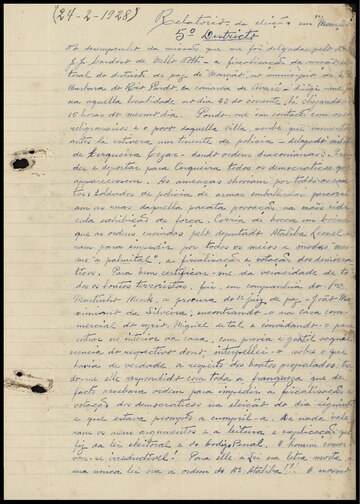 (24-2-1928) Relatorio da eleição em "Monção"
5º Districto
Ao desempenho da missão que me foi delegada pelo
J. J. Cardozo de Mello Netto - a fiscalisação da secção elei-
toral do districto de paz de Monção, no municipio de
Barbara do Rio Pardo, da comarca de Avaré - dirigi-me pa-
ra aquella localidade no dia 23 do corrente, lá chegando
15 horas do mesmo dia. Pondo-me em contacto com os co-
religionarios e o povo daquella villa, soube que momentos
antes lá estivera um tenente de policia e delegado militar
de Cerqueira Cezar - dando ordens draconianas:
der e deportar para Cerqueira todos os democraticos que
apparecessem. As ameaças choviam por todos os can-
tos, soldados de policia de armas embaladas percorri-
am as ruas daquella pacata povoação, na mais ridi-
cula exhibição de força. Corria de bocca em bocca
que as ordens enviadas pelo deputado Ataliba Leonel
eram para impedir por todos os meios e modos mes-
mo "a palmital", a fiscalisação e votação dos democra-
ticos. Para bem certificar-me da veracidade de to-
dos os boatos terroristas, fui, em companhia do
á procura do 1º juiz de paz - João Ma-
ximiano da Silveira, encontrando-o na casa com-
mercial do syrio Miguel de tal e convidando-o para
entrar no interior da casa, com previa e gentil acquie-
scencia do respectivo dono, interpellei-o sobre o que
havia de verdade, a respeito dos boatos propalados, ten-
do-me elle respondido com toda a franqueza que de
facto recebera ordem para impedir a fiscalisação e
votação dos democraticos na eleição do dia seguinte
e que estava prompto a cumpril-a. De nada vale-
ram os meus argumentos e a leitura e explicação que
fiz da lei eleitoral e do Codigo Penal. O homem conser-
vou-se irreductivel! Para elle a Lei na letra morta a
sua unica lei era a ordem do Dr Ataliba!!!